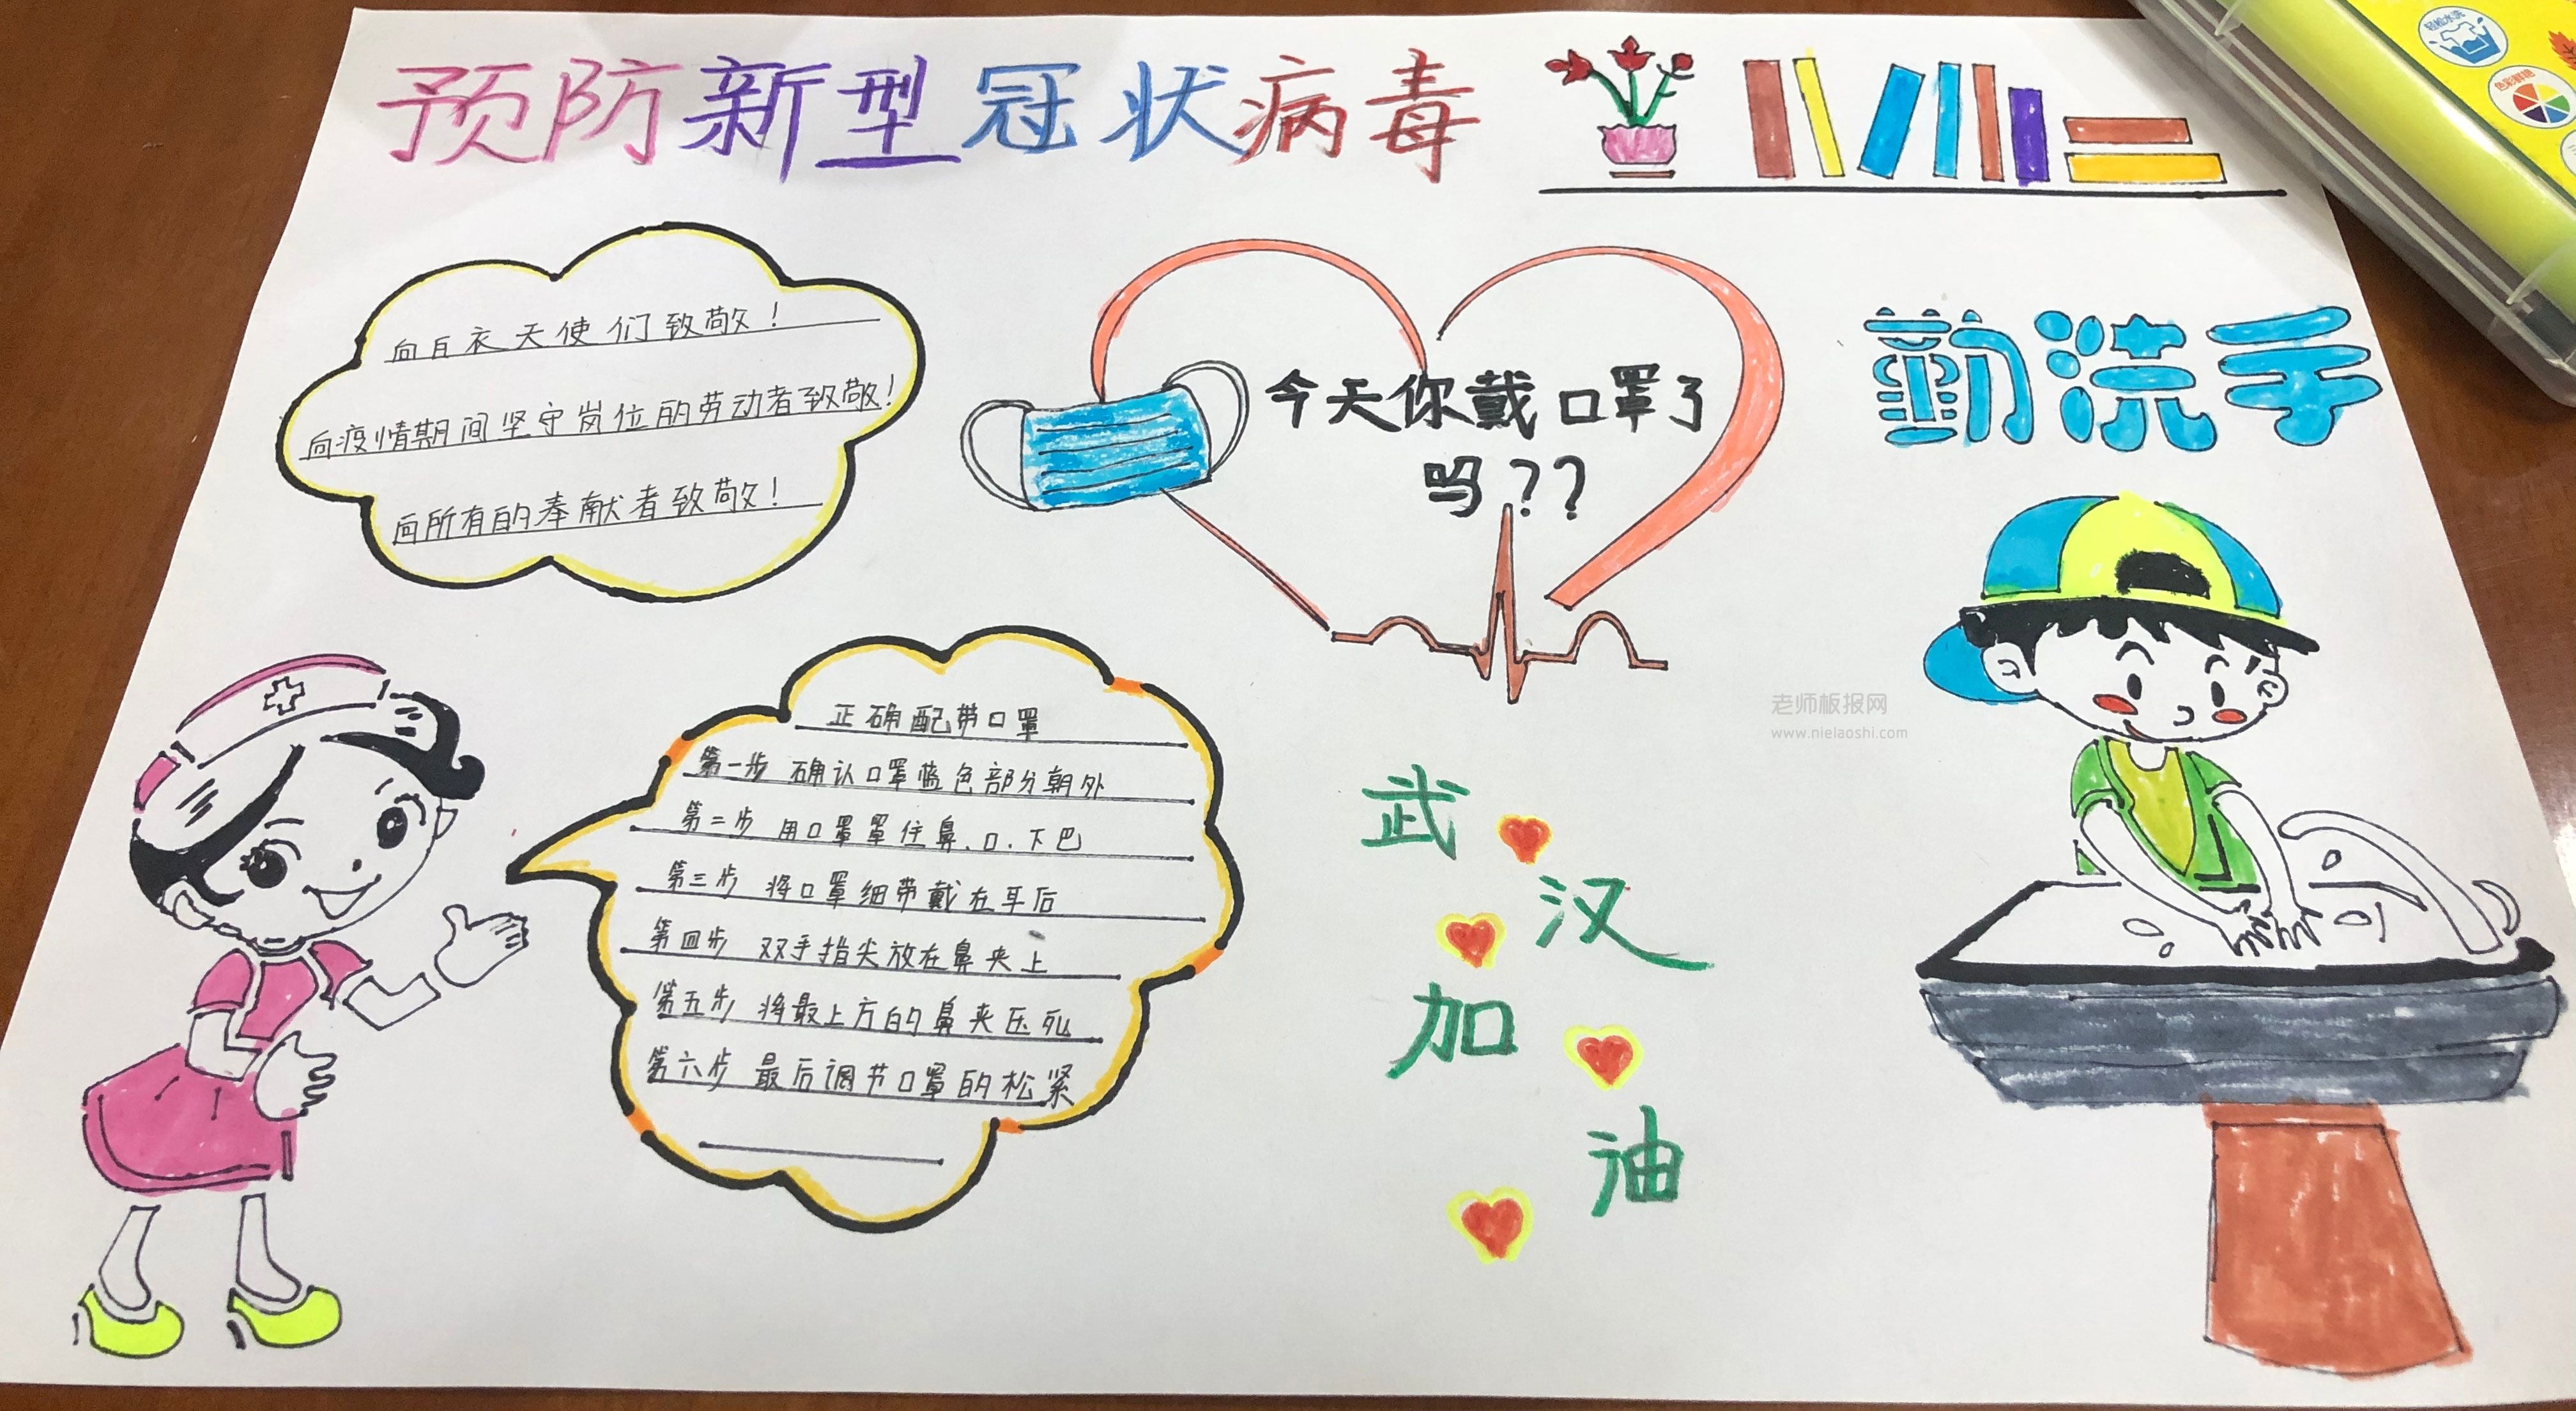 预防新型冠状病毒
轻松水洗
向白衣天使们致敬！
向疫情期间坚守岗位的劳动者致敬！
向所有的奉献者致敬！
今天你戴口罩了
吗？？
勤洗手
正确配带口罩
第一步 确认口罩蓝色部分朝外
第二步 用口罩罩住鼻、口、下巴
第三步 将口罩细带戴在耳后
第四步 双手指尖放在鼻夹上
第五步 将最上方的鼻夹压死
第六步 最后调节口罩的松紧
武
汉
加
油
老师板报网
www.nielaoshi.com